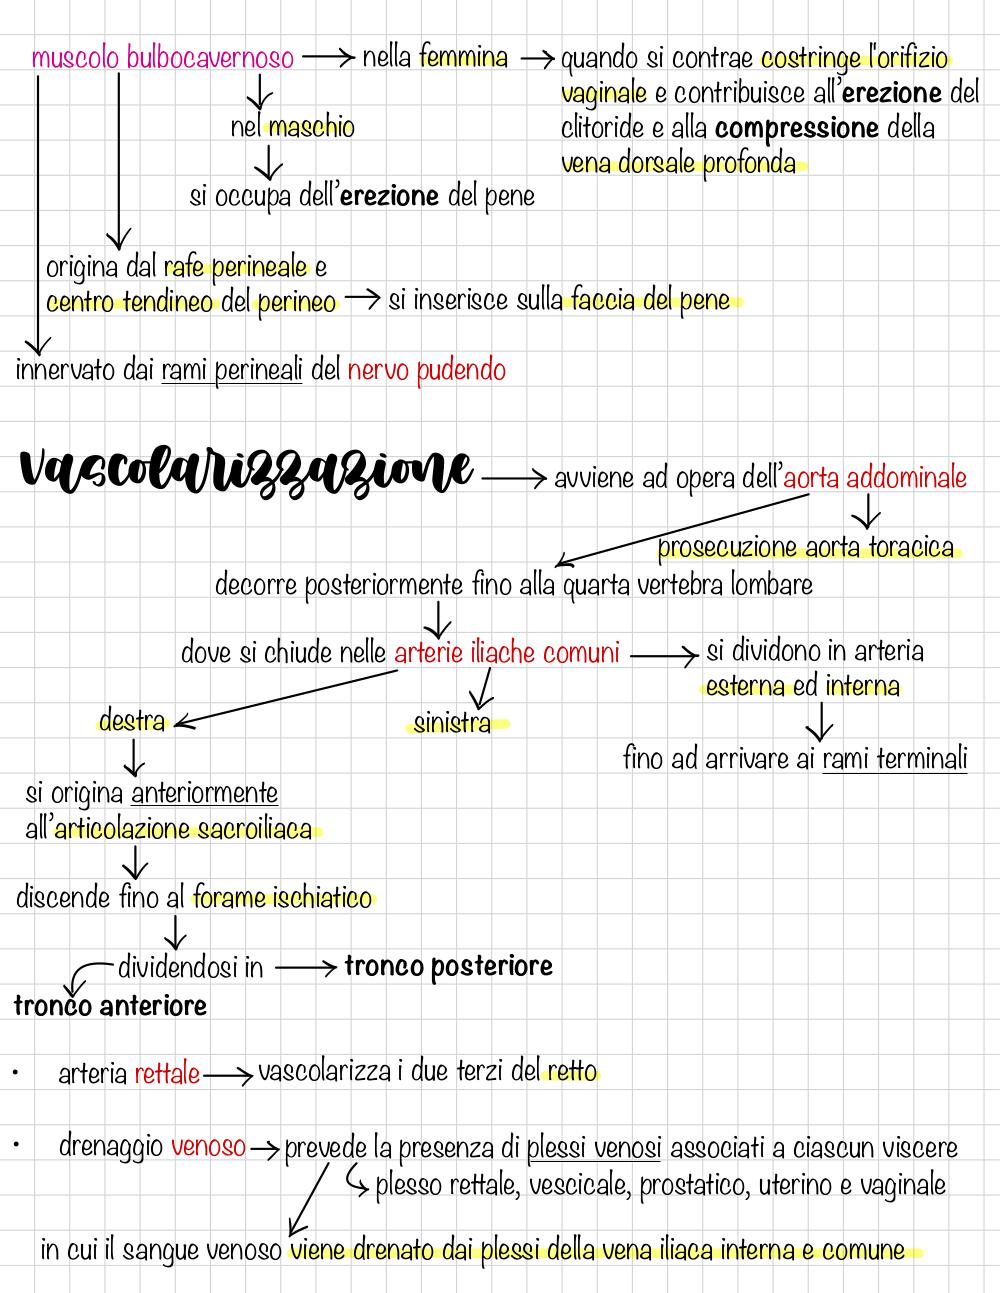 muscolo bulbocavernoso → nella femmina → quando si contrae costringe l'orifizio
vaginale e contribuisce all'erezione del
nel maschio
clitoride e alla compressione della
vena dorsale profonda
si occupa dell'erezione del pene
origina dal rafe perineale e
centro tendineo del perineo → si inserisce sulla faccia del pene
innervato dai rami perineali del nervo pudendo
vascolarizzazione → avviene ad opera dell'aorta addominale
prosecuzione aorta toracica
decorre posteriormente fino alla quarta vertebra lombare
dove si chiude nelle arterie iliache comuni → si dividono in arteria
esterna ed interna
destra
sinistra
fino ad arrivare ai rami terminali
si origina anteriormente
all'articolazione sacroiliaca
discende fino al forame ischiatico
dividendosi in → tronco posteriore
tronco anteriore
• arteria rettale → vascolarizza i due terzi del retto
• drenaggio venoso → prevede la presenza di plessi venosi associati a ciascun viscere
plesso rettale, vescicale, prostatico, uterino e vaginale
in cui il sangue venoso viene drenato dai plessi della vena iliaca interna e comune